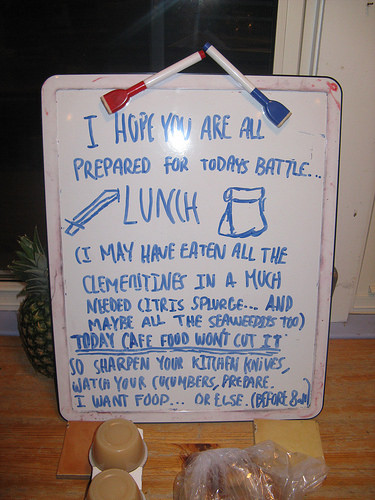 I HOPE YOU ARE ALL
PREPARED FOR TODAYS BATTLE...
LUNCH
(I MAY HAVE EATEN ALL THE
CLEMENTINES IN A MUCH
NEEDED CITRIS SPLURGE... AND
MAYBE ALL THE SEAWEEDIES TOO)
TODAY CAFE FOOD WONT CUT IT
SO SHARPEN YOUR KITCHEN KNIVES,
WATCH YOUR CUCUMBERS, PREPARE.
I WANT FOOD... OR ELSE. (BEFORE 8am)